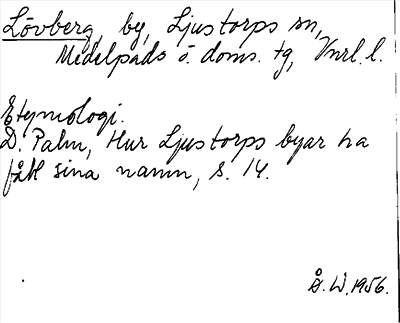 Lövberg, by, Ljustorps sn,
Medelpads ö. doms. tg, Vnrl. l.
Etymologi.
D. Palm, Hur Ljustorps byar ha
fått sina namn, s. 14.
Å. W. 1956.